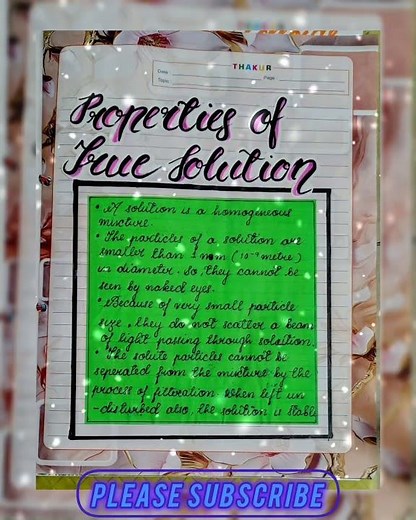 THAKUR
Date
Page
Topic
Properties of
True Solution
• A solution is a homogineous
mixture.
• The particles of a solution are
smaller than 1 nm (10⁻⁹ metre)
in diameter. So, they cannot be
seen by naked eyes.
• Because of very small particle
size, they do not scatter a beam
of light passing through solution.
• The solute particles cannot be
seperated from the mixture by the
process of filteration. When left un
-disturbed also, the solution is stable
PLEASE SUBSCRIBE